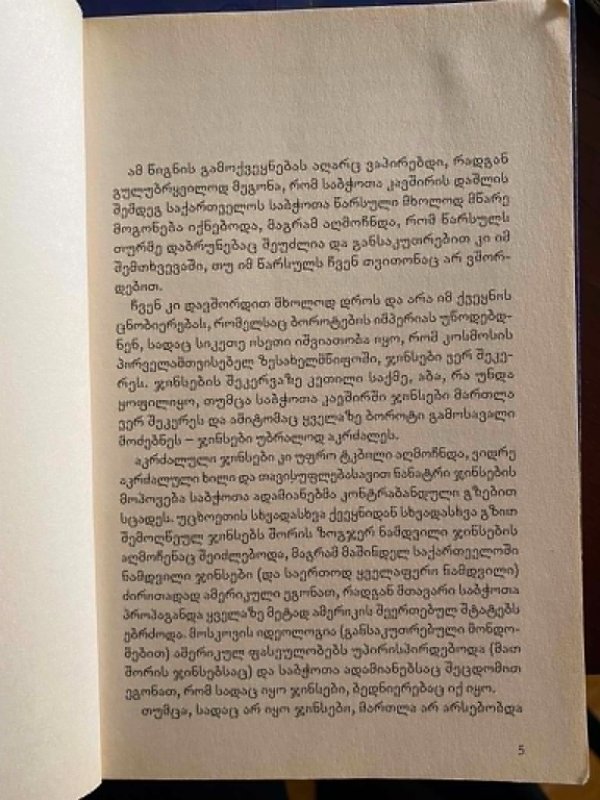 ამ წიგნის გამოქვეყნებას აღარც ვაპირებდი, რადგან
გულუბრყვილოდ მეგონა, რომ საბჭოთა კავშირის დაშლის
შემდეგ საქართველოს საბჭოთა წარსული მხოლოდ მწარე
მოგონება იქნებოდა, მაგრამ აღმოჩნდა, რომ წარსულს
თურმე დაბრუნებაც შეუძლია და განსაკუთრებით კი იმ
შემთხვევაში, თუ იმ წარსულს ჩვენ თვითონაც არ ვშორ-
დებით.
ჩვენ კი დავშორდით მხოლოდ დროს და არა იმ ქვეყნის
ცნობიერებას, რომელსაც ბოროტების იმპერიას უწოდებდ-
ნენ, სადაც სიკეთე ისეთი იშვიათობა იყო, რომ კოსმოსის
პირველამთვისებელ ზესახელმწიფოში, ჯინსები ვერ შეკე-
რეს. ჯინსების შეკერვაზე კეთილი საქმე, აბა, რა უნდა
ყოფილიყო, თუმცა საბჭოთა კავშირში ჯინსები მართლა
ვერ შეკერეს და ამიტომაც ყველაზე ბოროტი გამოსავალი
მოძებნეს – ჯინსები უბრალოდ აკრძალეს.
აკრძალული ჯინსები კი უფრო ტკბილი აღმოჩნდა, ვიდრე
აკრძალული ხილი და თავისუფლებასავით ნანატრი ჯინსების
მოპოვება საბჭოთა ადამიანებმა კონტრაბანდული გზებით
სცადეს. უცხოეთის სხვადასხვა ქვეყნიდან სხვადასხვა გზით
შემოღწეულ ჯინსებს შორის ზოგჯერ ნამდვილი ჯინსების
აღმოჩენაც შეიძლებოდა, მაგრამ მაშინდელ საქართველოში
ნამდვილი ჯინსები (და საერთოდ ყველაფერი ნამდვილი)
ძირითადად ამერიკული ეგონათ, რადგან მთავარი საბჭოთა
პროპაგანდა ყველაზე მეტად ამერიკის შეერთებულ შტატებს
ებრძოდა. მოსკოვის იდეოლოგია (განსაკუთრებული მონდო-
მებით) ამერიკულ ფასეულობებს უპირისპირდებოდა (მათ
შორის ჯინსებსაც) და საბჭოთა ადამიანებსაც შეცდომით
ეგონათ, რომ სადაც იყო ჯინსები, ბედნიერებაც იქ იყო.
თუმცა, სადაც არ იყო ჯინსები, მართლა არ არსებობდა
5